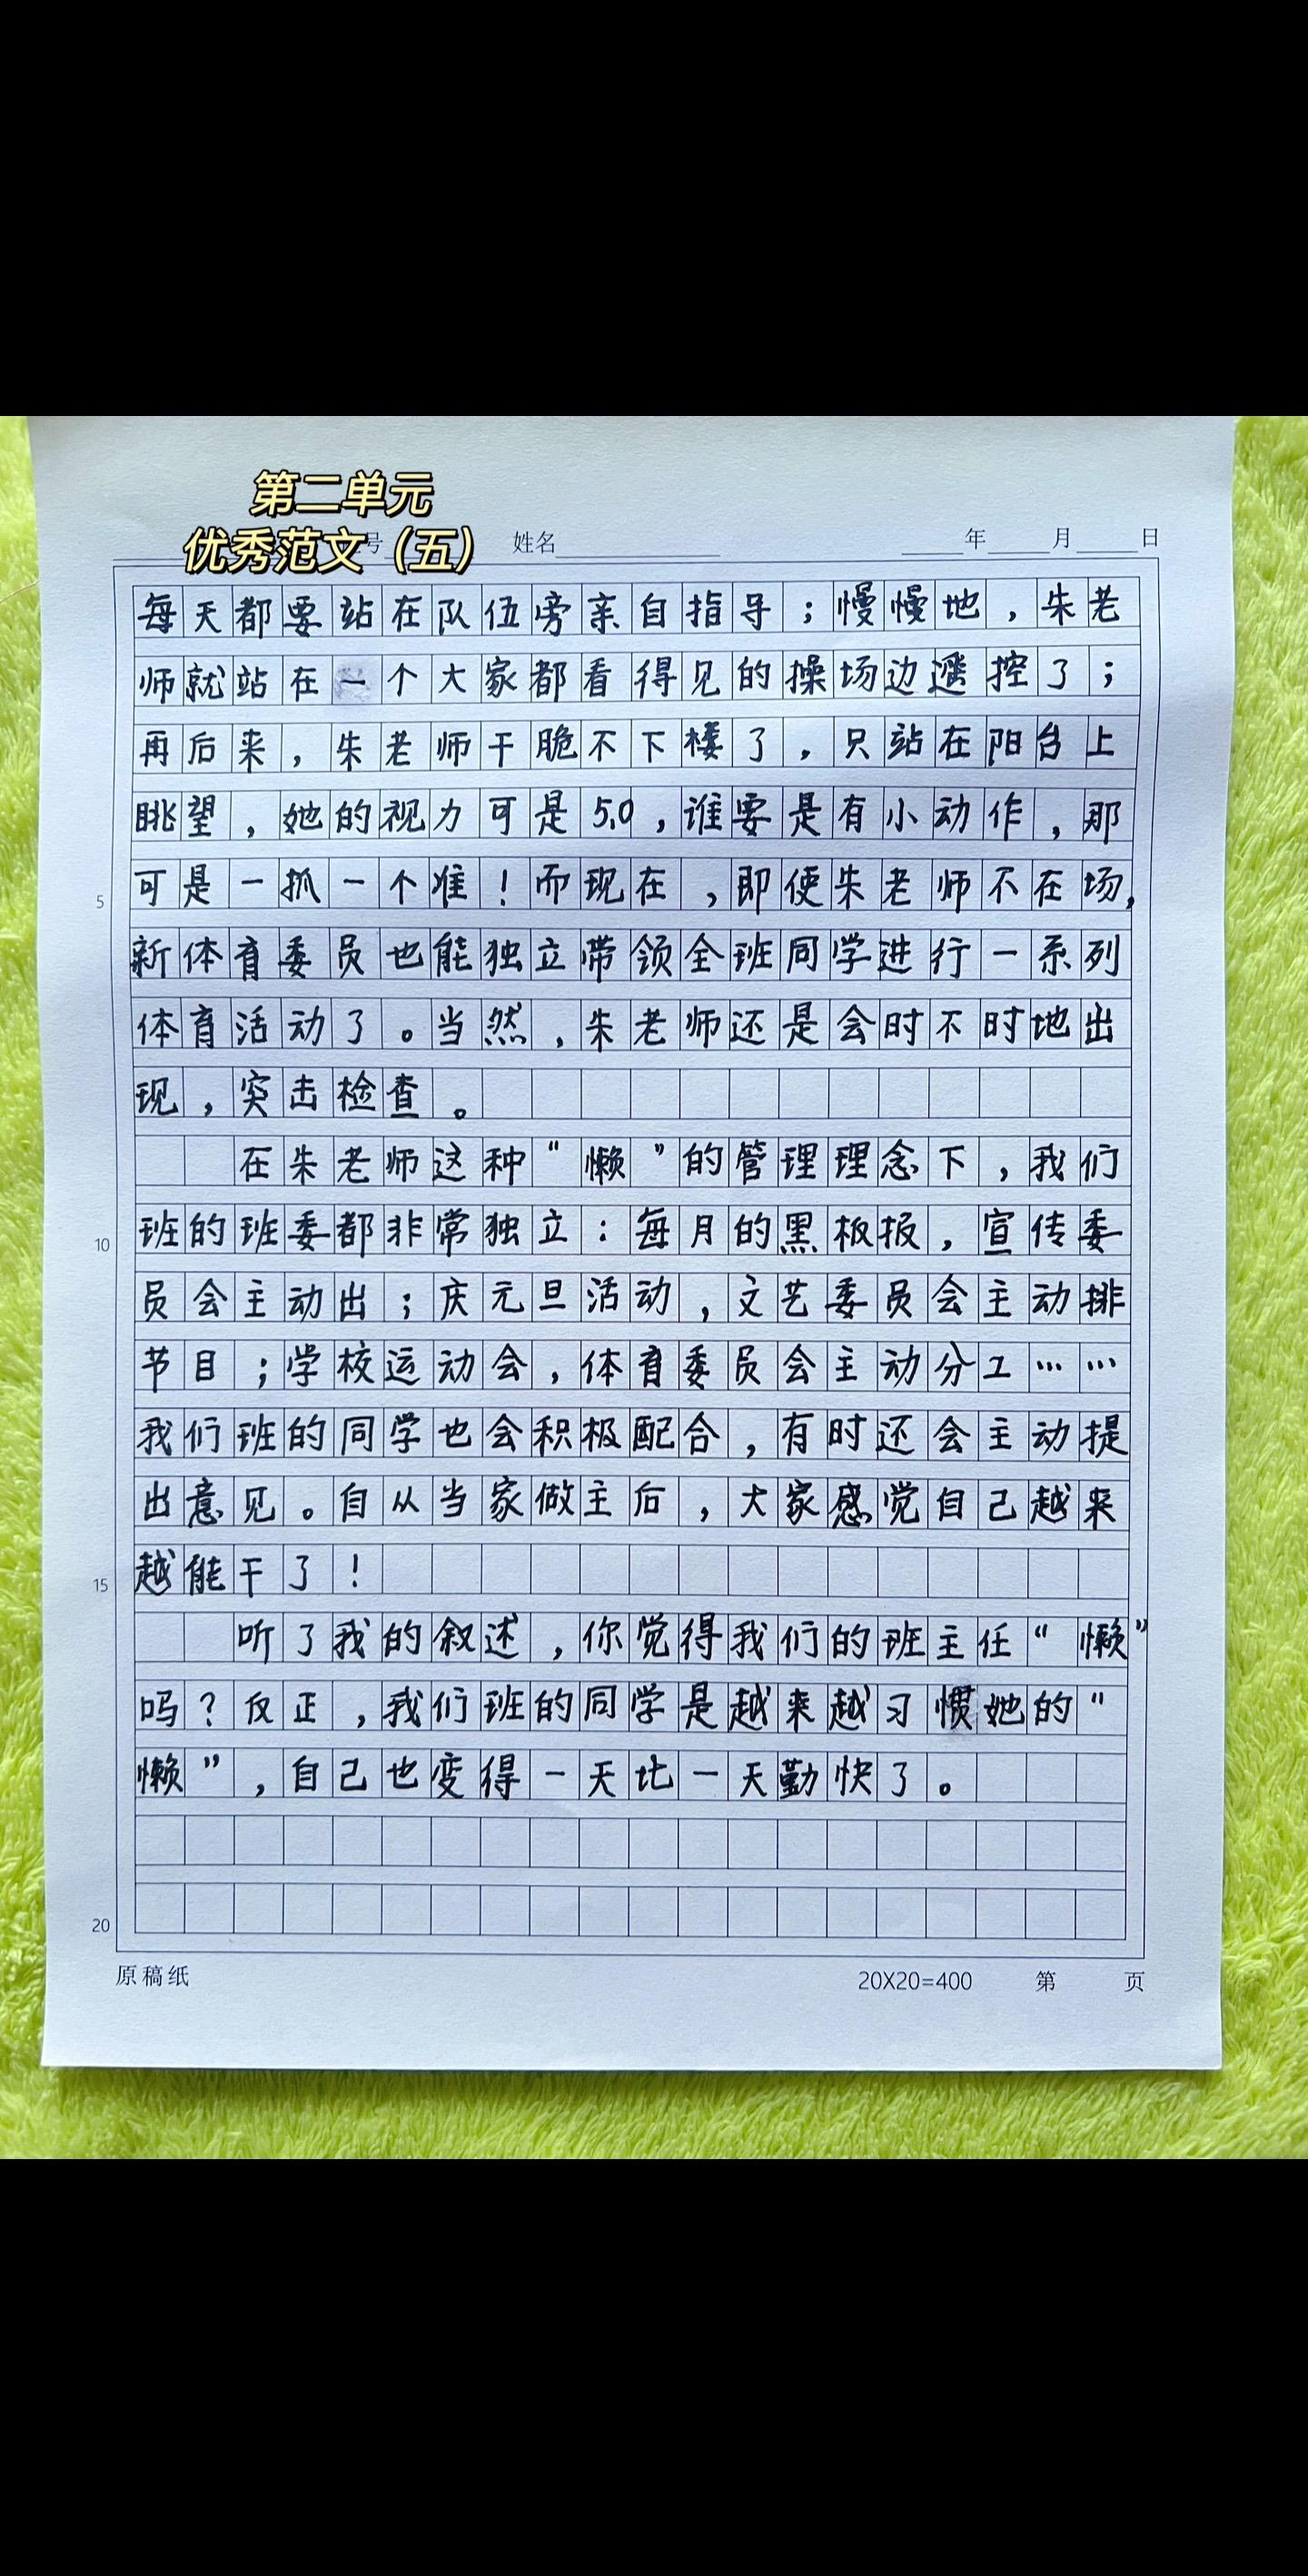 第二单元
优秀范文（五）
号 姓名 年 月 日
每天都要站在队伍旁亲自指导；慢慢地，朱老
师就站在一个大家都看得见的操场边遥控了；
再后来，朱老师干脆不下楼了，只站在阳台上
眺望，她的视力可是5.0，谁要是有小动作，那
可是一抓一个准！而现在，即使朱老师不在场，
5
新体育委员也能独立带领全班同学进行一系列
体育活动了。当然，朱老师还是会时不时地出
现，突击检查。
在朱老师这种“懒”的管理理念下，我们
班的班委都非常独立：每月的黑板报，宣传委
10
员会主动出；庆元旦活动，文艺委员会主动排
节目；学校运动会，体育委员会主动分工……
我们班的同学也会积极配合，有时还会主动提
出意见。自从当家做主后，大家感觉自己越来
越能干了！
15
听了我的叙述，你觉得我们的班主任“懒”
吗？反正，我们班的同学是越来越习惯她的“
懒”，自己也变得一天比一天勤快了。
20
原稿纸 20X20=400 第 页